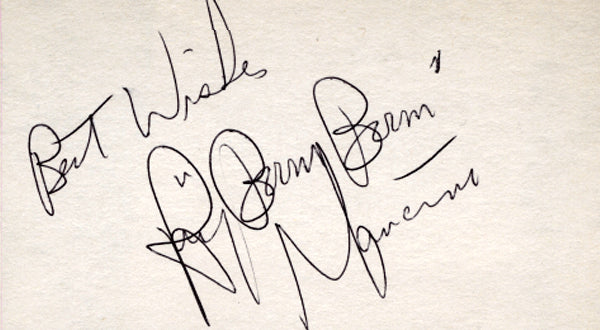 Best Wishes
Ray "Boom Boom"
Mancini